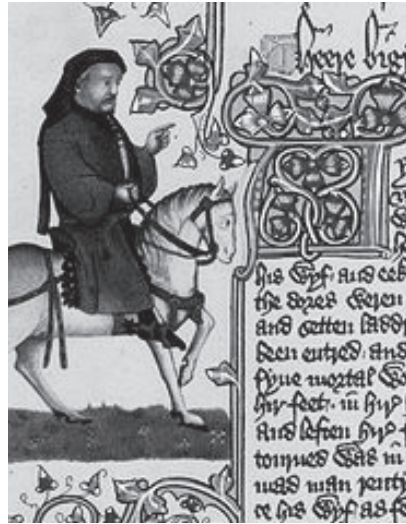 Heere bigy
his Wyf and eek
the dores weren
and setten laddr
been entred and
fyue mortal Wo
hir feet in hir
And leften hir
tourned was in
mad man renty
ce his Wyf as fe